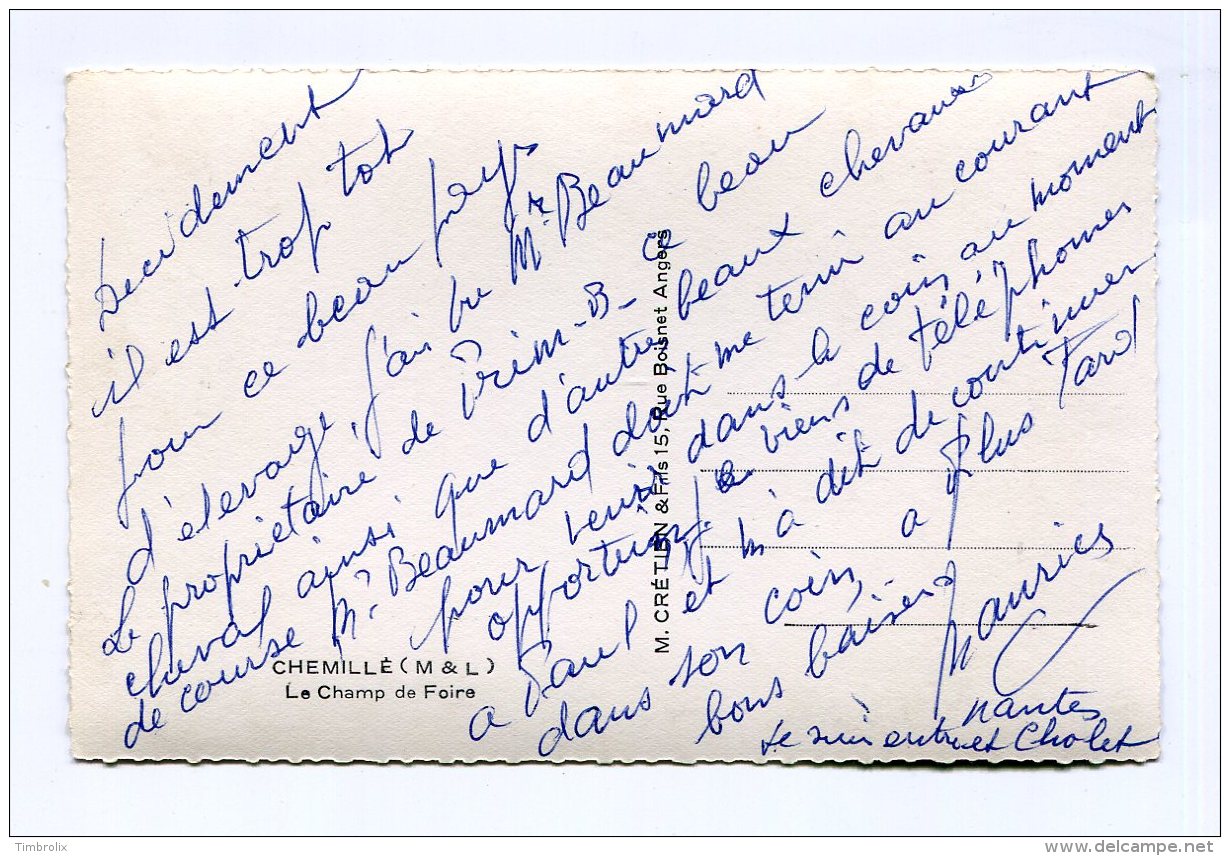 Decidement
il est trop tot
pour ce beau pays
d'elevage, j'ai vu Mr Beaumard
le proprietaire de Prim-B- ce beau
cheval ainsi que d'autre beaux chevaux
de course Mr Beaumard doit me tenir au courant
pour venir dans le coin au moment
opportun, je viens de téléphoner
a Paul et m'a dit de continuer
dans son coin, a plus Tard
bons baisers Maurice
Je suis entre et Cholet
nantes
CHEMILLÉ (M & L)
Le Champ de Foire
M. CRÉTIEN & Fils 15, Rue Boisnet Angers
Timbrolix
delcampe.net